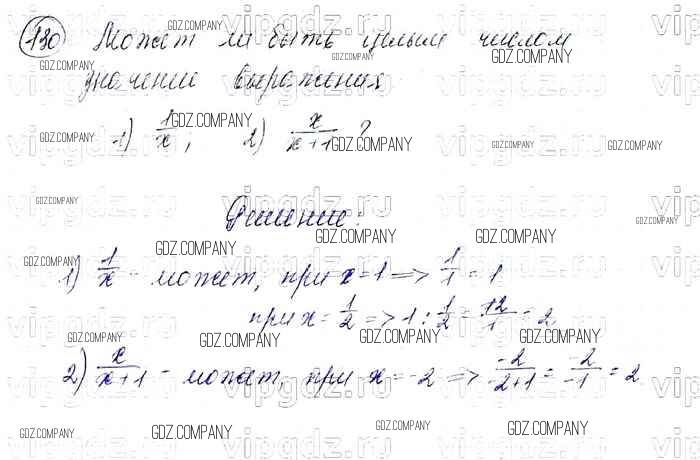 130 Может ли быть целым числом
значение выражения
1) 1/x, 2) x/x+1 ?
Решение:
1) 1/x - может, при x=1 => 1/1 = 1
при x = 1/2 => 1 : 1/2 = 12/1 = 2
2) x/x+1 - может, при x = -2 => -2/-2+1 = -2/-1 = 2
GDZ.COMPANY
vipgdz.ru